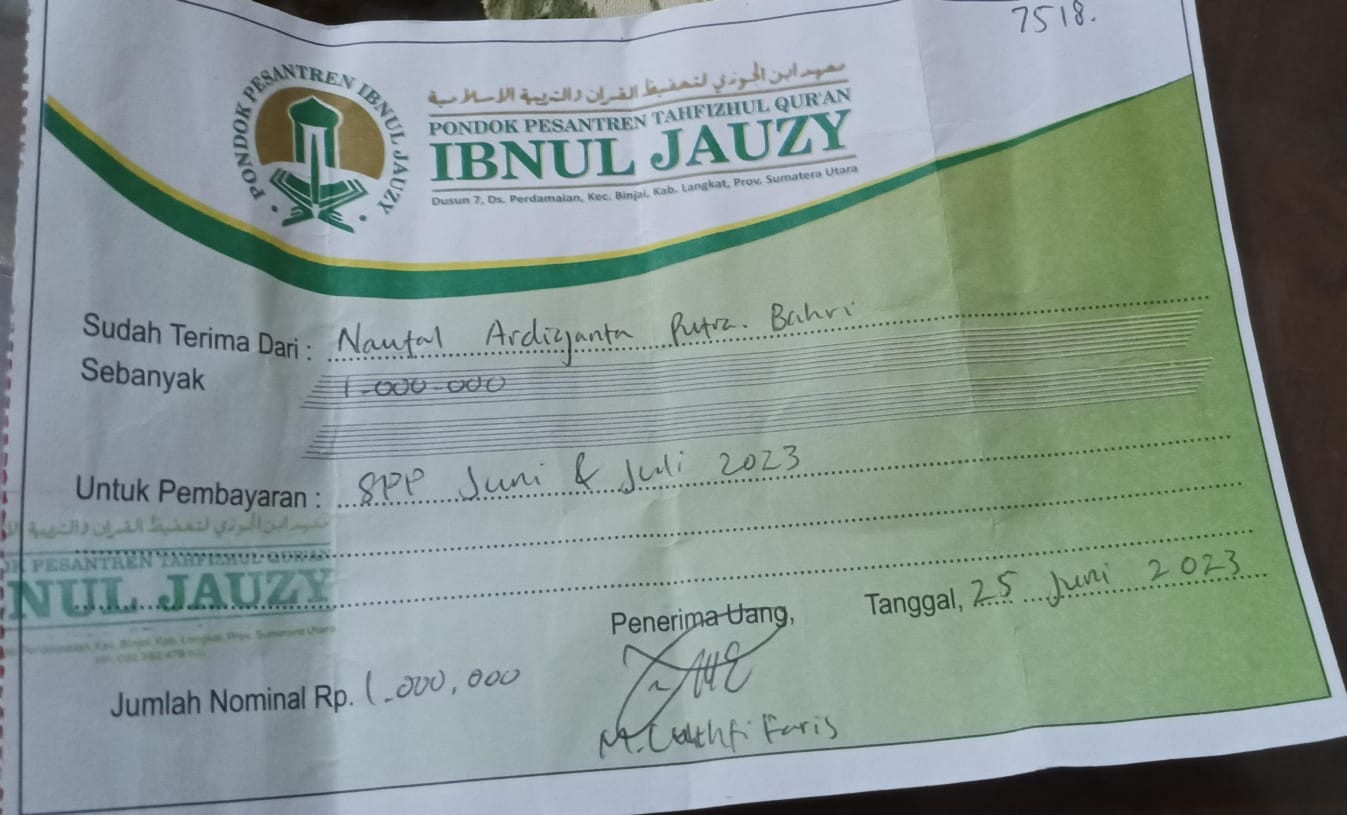 7518.
PONDOK PESANTREN IBNUL JAUZY
معهد ابن الجوزي لتحفيظ القران والتربية الاسلامية
PONDOK PESANTREN TAHFIZHUL QUR'AN
IBNUL JAUZY
Dusun 7, Ds. Perdamaian, Kec. Binjai, Kab. Langkat, Prov. Sumatera Utara
Sudah Terima Dari : Naufal Ardiyanta Putra. Bahri
Sebanyak 1.000.000
Untuk Pembayaran : SPP Juni & Juli 2023
معهد ابن الجوزي لتحفيظ القران والتربية
PESANTREN TAHFIZHUL QUR'AN
NUL JAUZY
Kec. Binjai, Kab. Langkat, Prov. Sumatera Utara
Tanggal, 25 Juni 2023
Penerima Uang,
Jumlah Nominal Rp. 1.000,000
M. Luthfi Faris